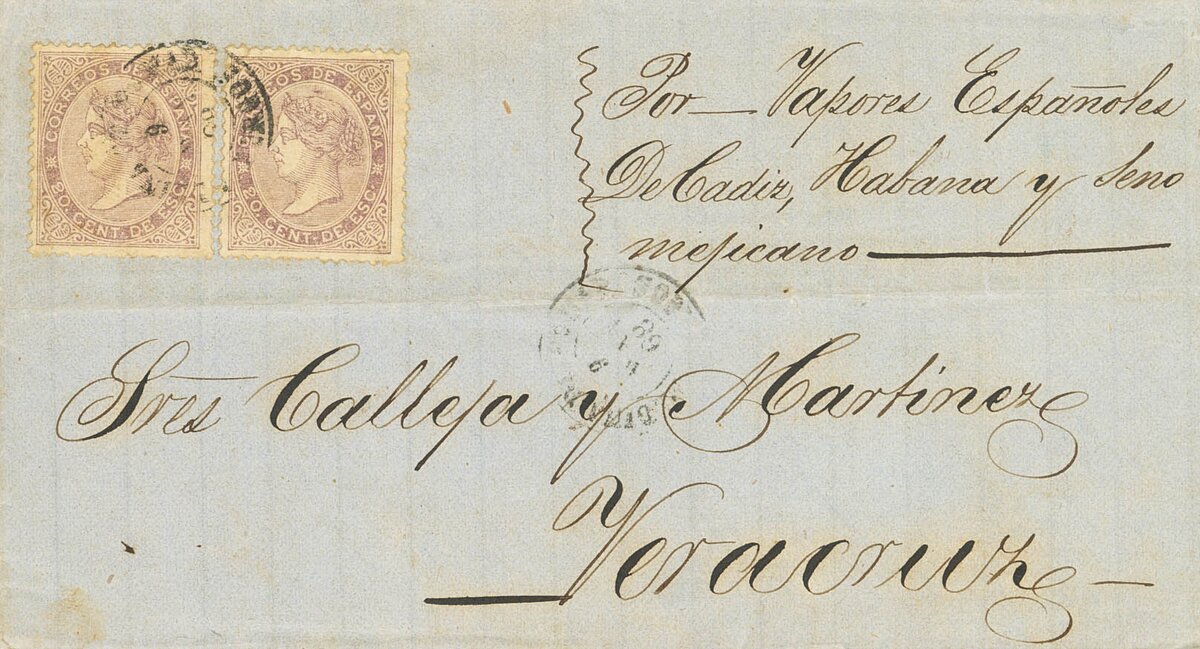 CORREOS DE ESPAÑA
20 CENT. DE ESCO.
CORREOS DE ESPAÑA
20 CENT. DE ESCO.
Por Vapores Españoles
De Cadiz, Habana y Seno
mejicano
Sres Calleja y Martinez
Veracruz